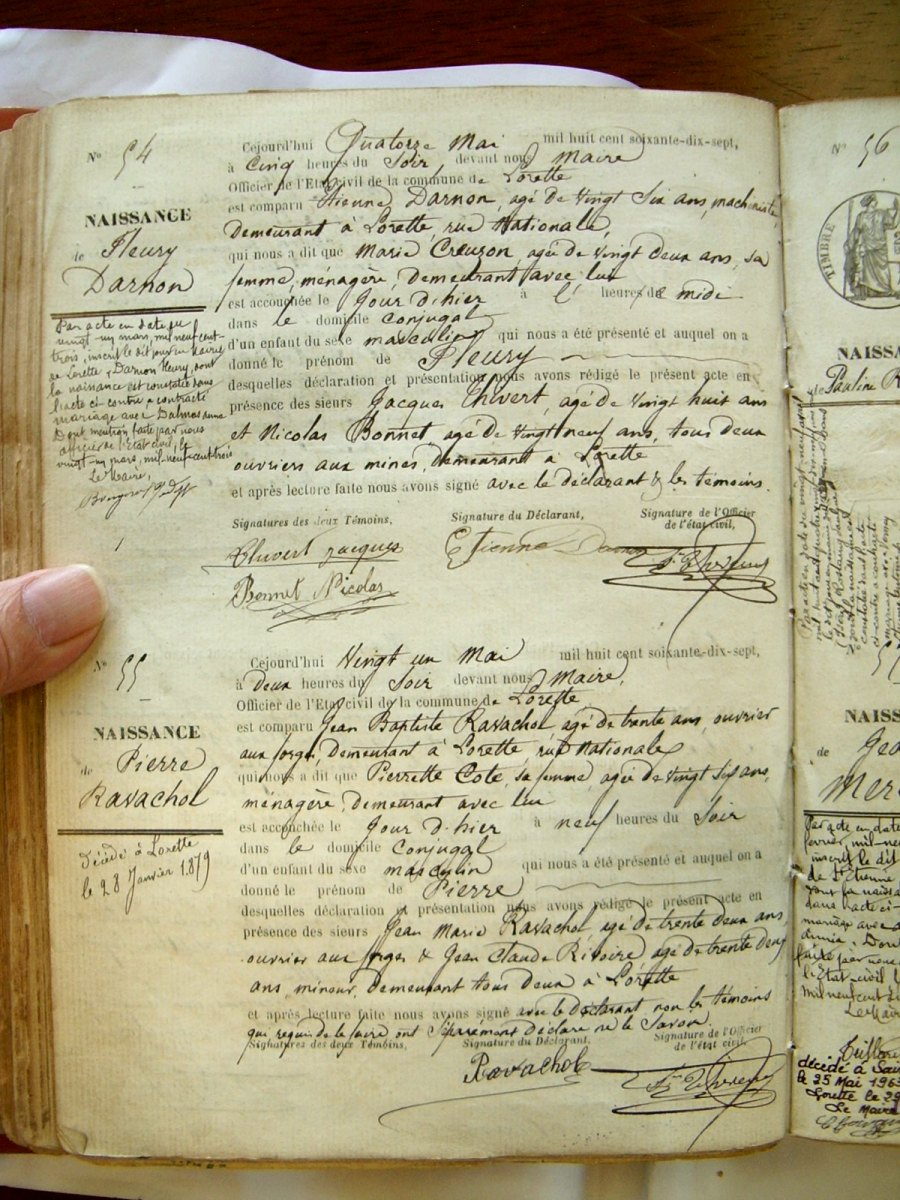 N° 54
NAISSANCE
de Fleury
Darnon
Par acte en date du
vingt-un mars, mil neuf cent-
trois, inscrit le dit jour en mairie
de Lorette, Darnon Fleury, dont
la naissance est constatée dans
l'acte ci-contre a contracté
mariage avec Dalmas
Dont mention faite par nous
officier de l'Etat civil, le
vingt-un mars, mil-neuf-cent-trois
Le Maire,
Cejourd'hui Quatorze Mai mil huit cent soixante-dix-sept,
à Cinq heures du Soir, devant nous Maire
Officier de l'Etat civil de la commune de Lorette
est comparu Etienne Darnon, agé de vingt Six ans, machiniste
demeurant à Lorette, rue Nationale,
qui nous a dit que Marie Creuzon, agée de vingt deux ans, sa
femme, ménagère, demeurant avec lui
est accouchée le Jour d'hier à l' heures de midi
dans le domicile conjugal
d'un enfant du sexe masculin qui nous a été présenté et auquel on a
donné le prénom de Fleury
desquelles déclaration et présentation nous avons rédigé le présent acte en
présence des sieurs Jacques Chivert, agé de vingt huit ans
et Nicolas Bonnet, agé de vingt neuf ans, tous deux
ouvriers aux mines, demeurant à Lorette
et après lecture faite nous avons signé avec le déclarant & les témoins.
Signatures des deux Témoins, Signature du Déclarant, Signature de l'Officier
de l'état civil,
Chivert Jacques Etienne Darnon
Bonnet Nicolas
N° 55
NAISSANCE
de Pierre
Ravachol
Décédé à Lorette
le 28 Janvier 1879
Cejourd'hui Vingt un Mai mil huit cent soixante-dix-sept,
à Deux heures du Soir devant nous Maire,
Officier de l'Etat civil de la commune de Lorette
est comparu Jean Baptiste Ravachol agé de trente ans, ouvrier
aux forges, demeurant à Lorette, rue Nationale
qui nous a dit que Pierrette Cote, sa femme, agée de vingt six ans,
ménagère, demeurant avec lui
est accouchée le Jour d'hier à neuf heures du Soir
dans le domicile conjugal
d'un enfant du sexe masculin qui nous a été présenté et auquel on a
donné le prénom de Pierre
desquelles déclaration et présentation nous avons rédigé le présent acte en
présence des sieurs Jean Marie Ravachol agé de trente deux ans,
ouvrier aux forges & Jean Claude Rivoire, agé de trente deux
ans, mineur, demeurant tous deux à Lorette
et après lecture faite nous avons signé avec le déclarant non les témoins
qui requis de le faire ont séparément déclaré ne le savoir.
Signatures des deux Témoins, Signature du Déclarant, Signature de l'Officier
de l'état civil,
Ravachol
N° 56
TIMBRE
NAISSA
de Pauline R
NAISS
de Jea
Mer
Par acte en date
inscrit le dit
de St Etienne
dans l'acte ci-
mariage avec
l'Etat civil
mil neuf cent
Le Mair
décédé à Sain
le 25 Mai 196
Lorette le 29
Le Maire